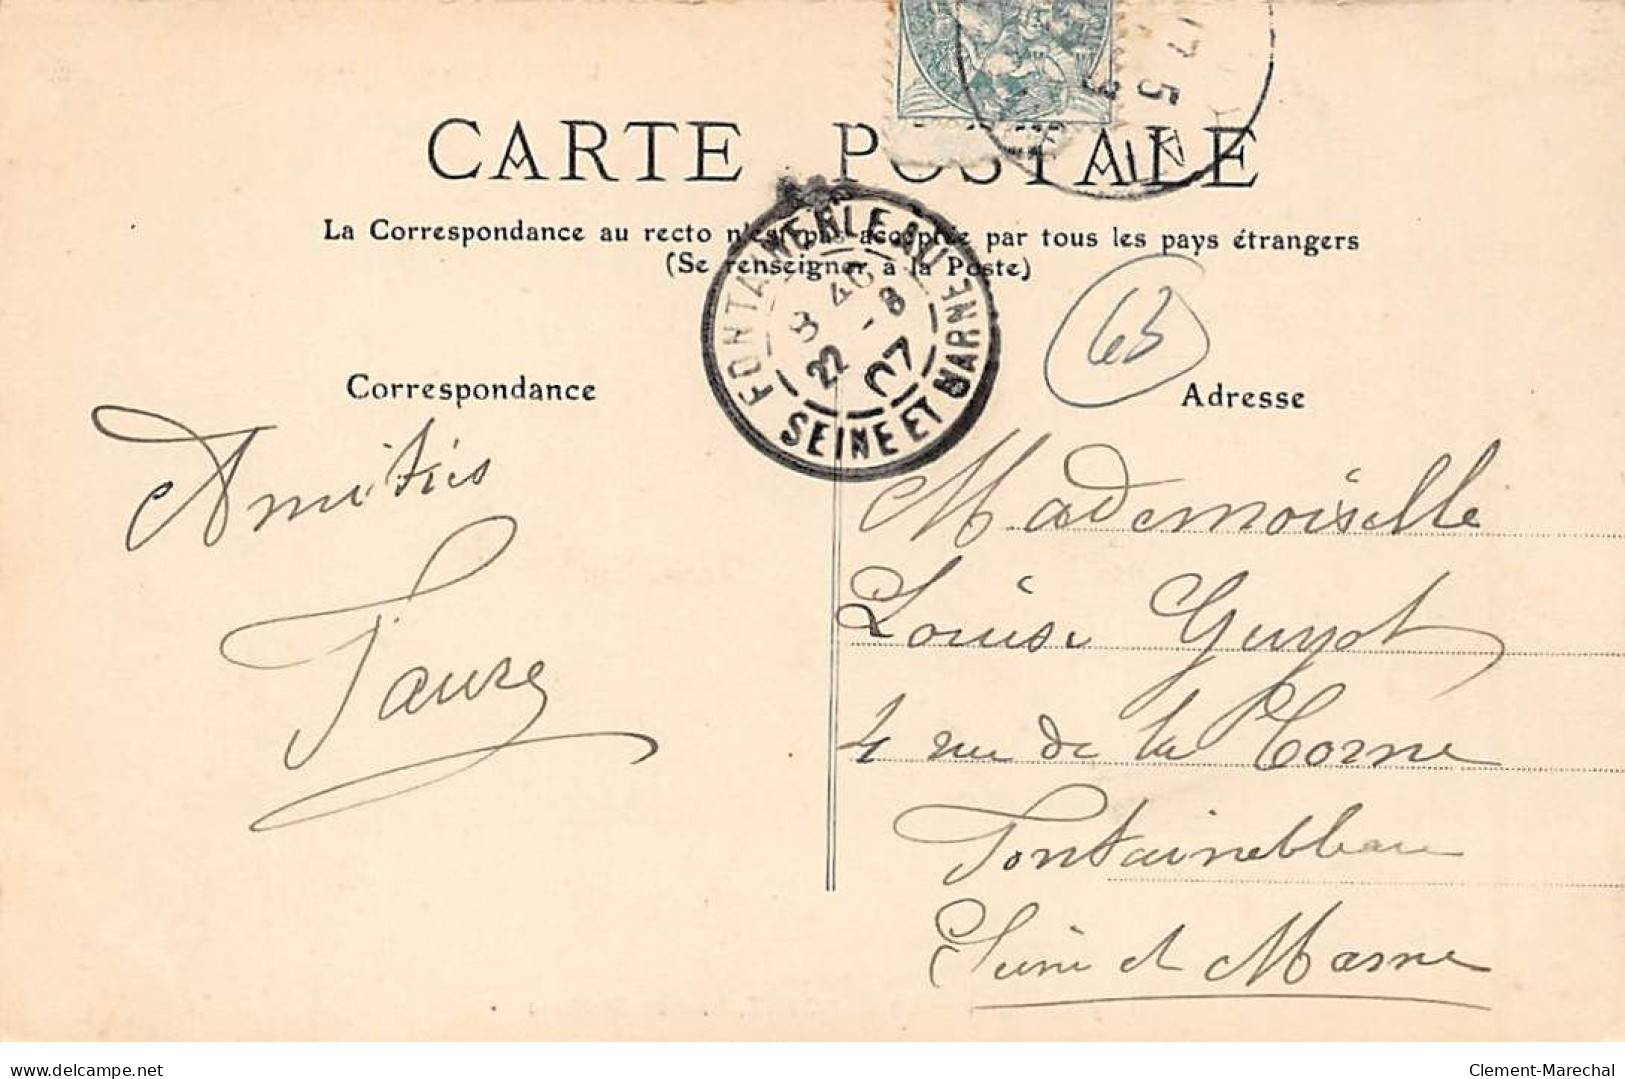 17 5
CARTE POSTALE
La Correspondance au recto n'est pas acceptée par tous les pays étrangers
(Se renseigner à la Poste)
FONTAINEBLEAU
8 40
22 - 8
07
SEINE ET MARNE
63
Correspondance
Adresse
Amitiés
Faure
Mademoiselle
Louise Guyot
4 rue de la Corne
Fontainebleau
Seine et Marne
www.delcampe.net
Clement-Marechal